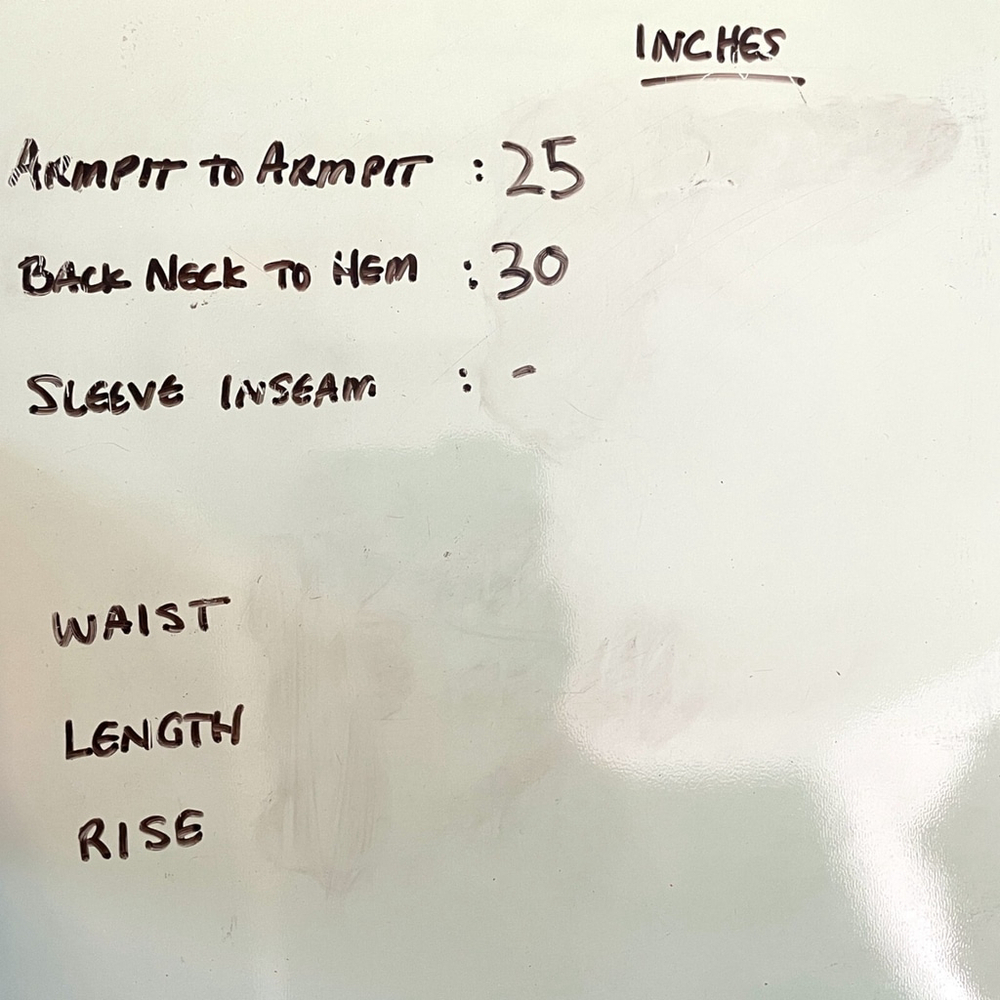 INCHES
ARMPIT TO ARMPIT : 25
BACK NECK TO HEM : 30
SLEEVE INSEAM : -
WAIST
LENGTH
RISE